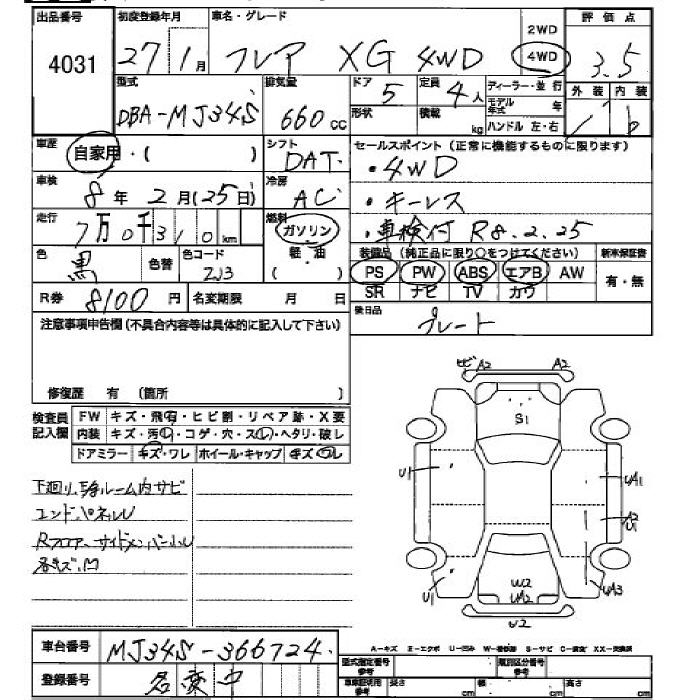 出品番号 初度登録年月 車名・グレード 2WD 評価点
4031 27/1月 フレア XG 4WD 4WD 3.5
型式 排気量 ドア 定員 ディーラー・並行 外装 内装
DBA-MJ34S 660cc 5 4人 モデル年式 年
形状 積載 kg ハンドル 左・右 b
車歴 自家用・( ) シフト DAT セールスポイント(正常に機能するものに限ります)
・4WD
車検 8年2月(25日) 冷房 AC ・キーレス
走行 7万0千310km 燃料 ガソリン ・車検付 R8.2.25
軽油
色 黒 色替 色コード ZJ3 装備品(純正品に限り○をつけてください) 新車保証書
PS PW ABS エアB AW 有・無
SR ナビ TV カワ
R券 8100円 名変期限 月 日 後日品 プレート
注意事項申告欄(不具合内容等は具体的に記入して下さい)
修復歴 有 (箇所 )
検査員記入欄 FW キズ・飛石・ヒビ割・リペア跡・X要
内装 キズ・汚れ・コゲ・穴・スレ・ヘタリ・破レ
ドアミラー キズ・ワレ ホイール・キャップ キズ ワレ
下廻り、E/gルーム内サビ
エンドパネルU
Rフロア、サイドメンバー小U
各キズ、凹
ビ A2 A2
S1
U1 UA1
A2
U1
U1 W2 UA2 UA3
U2
車台番号 MJ34S-366724
登録番号 名変中
A-キズ E-エクボ U-凹み W-補修跡 S-サビ C-腐食 XX-交換済
型式指定番号 参考 類別区分番号 参考
車庫証明用 参考 長さ cm 幅 cm 高さ cm